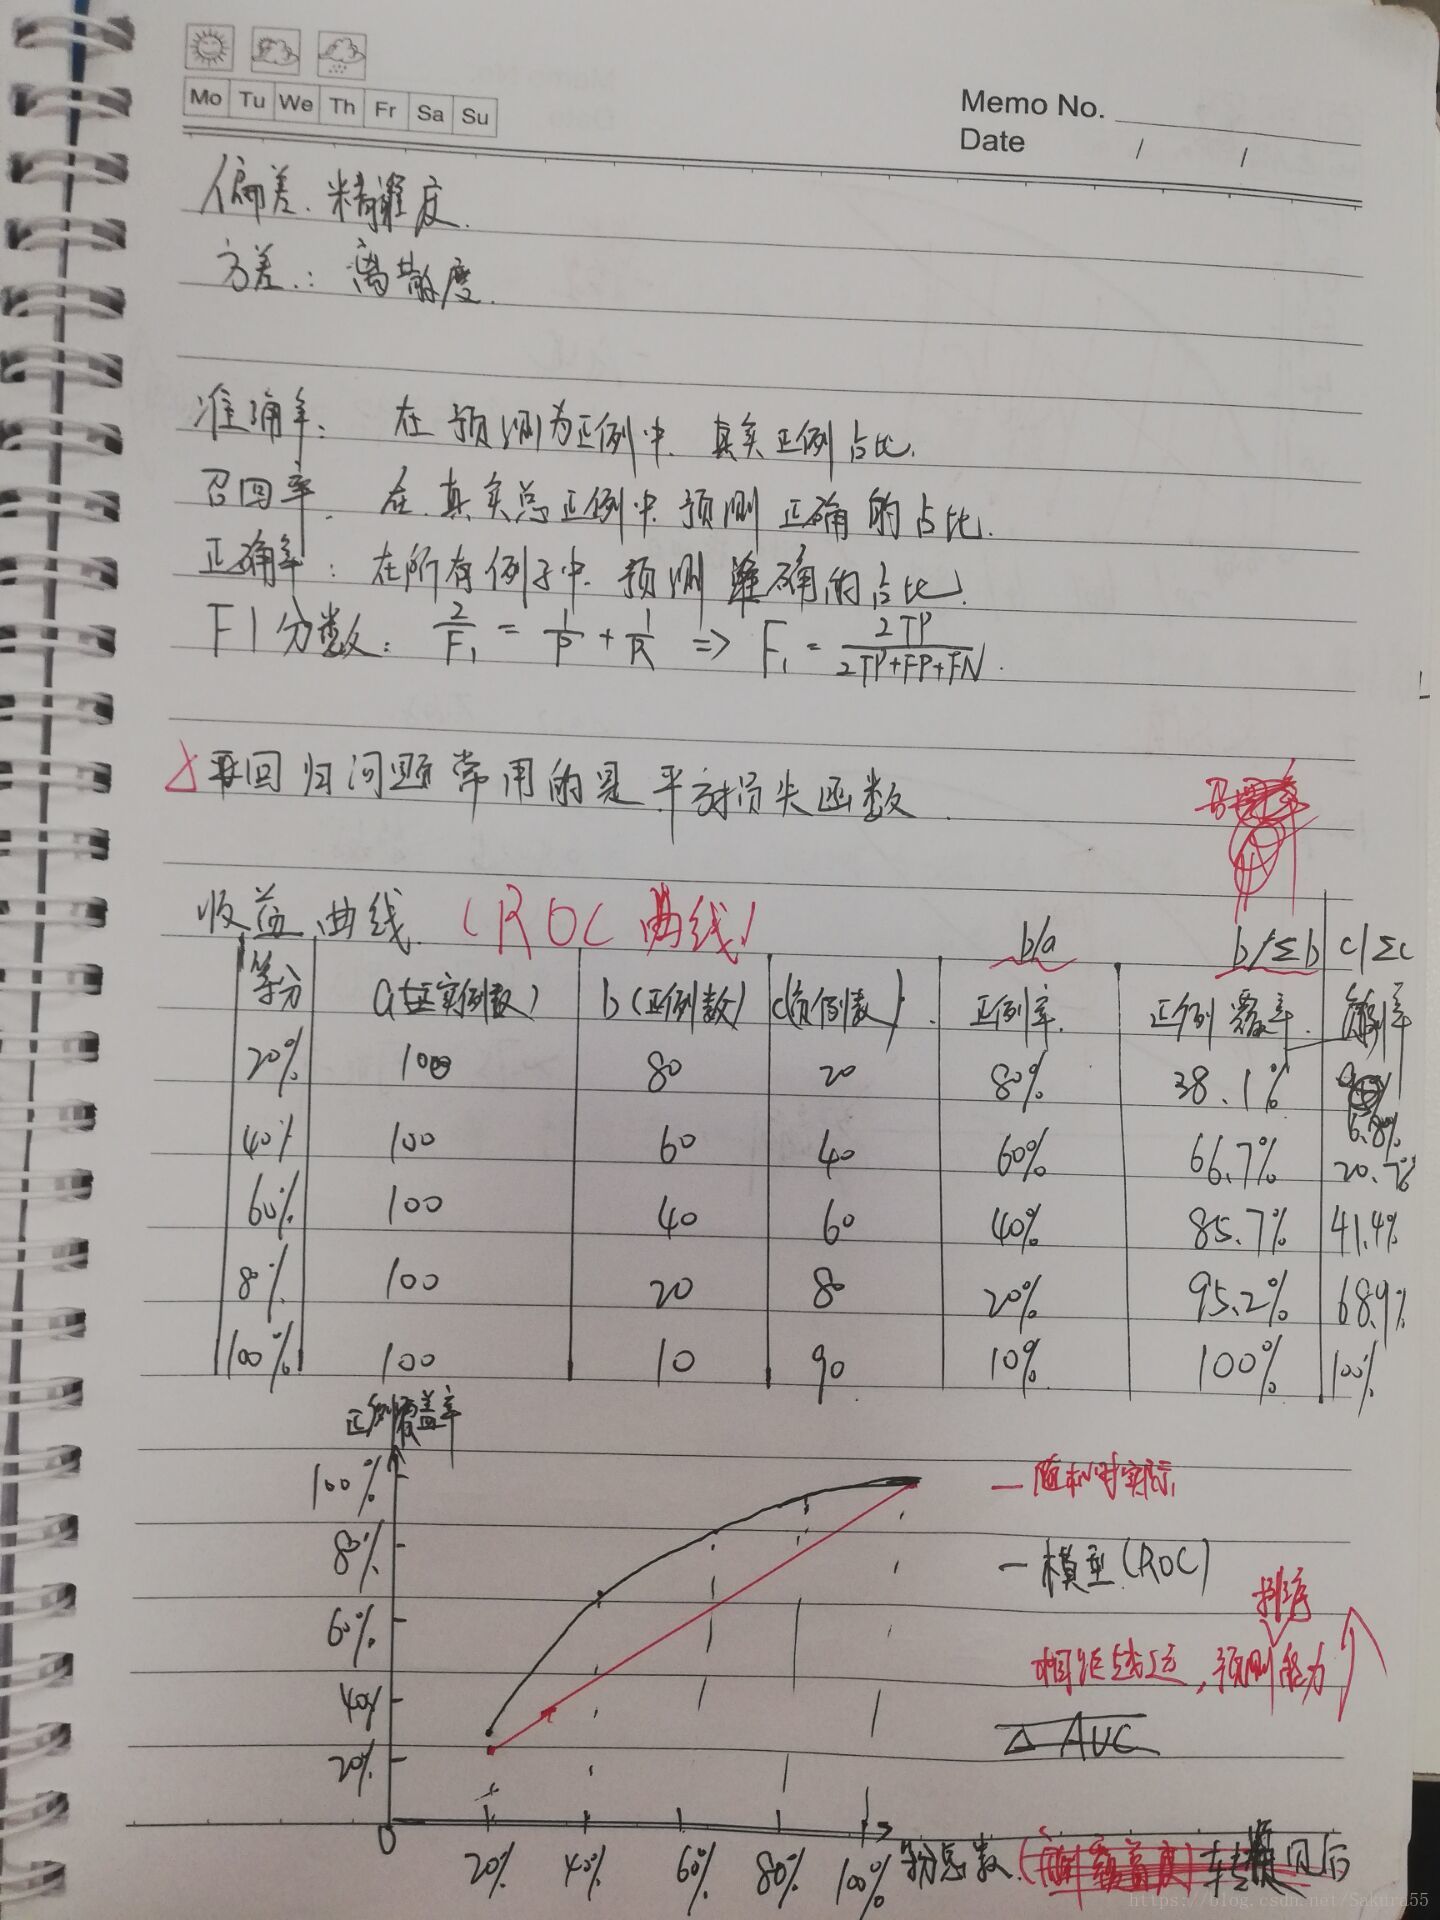 Mo Tu We Th Fr Sa Su
Memo No.
Date / /
偏差. 精准度.
方差.: 离散度.
准确率: 在预测为正例中. 真实正例占比.
召回率. 在真实总正例中. 预测正确的占比.
正确率: 在所有例子中. 预测准确的占比.
F1分数: 2/F₁ = 1/P + 1/R => F₁ = 2TP/(2TP+FP+FN).
回归问题常用的是平方损失函数.
召回率
收益曲线. (ROC曲线)
b/a b/Σb c/Σc
等分 a(实例数) b(正例数) c(负例数) 正例率. 正例覆盖率.
20% 100 80 20 80% 38.1%
6.8%
40% 100 60 40 60% 66.7% 20.7%
60% 100 40 60 40% 85.7% 41.4%
80% 100 20 80 20% 95.2% 68.9%
100% 100 10 90 10% 100% 100%
正例覆盖率
100%
— 随机时实际
80%
— 模型(ROC)
60%
排序
相距越远, 预测能力
40%
Δ AUC
20%
0
20% 40% 60% 80% 100% 等分总数
https://blog.csdn.net/Sakura55